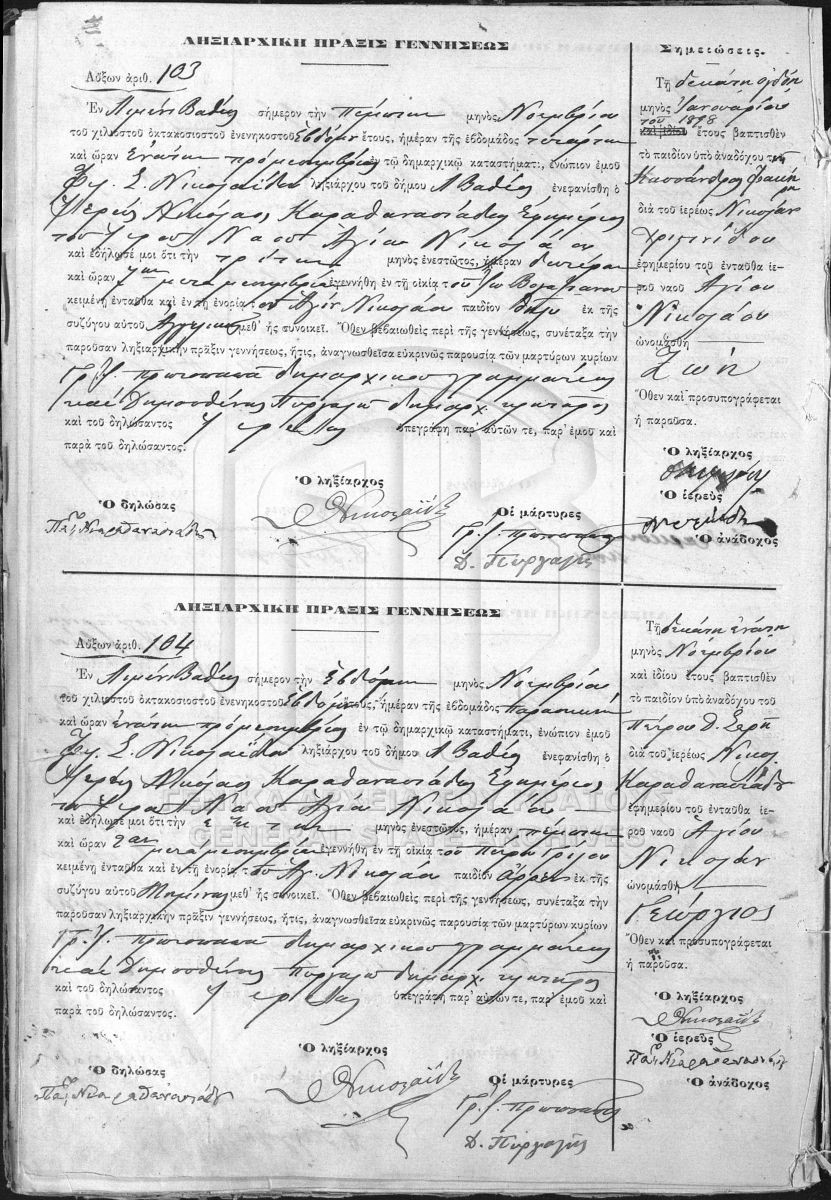 ΛΗΞΙΑΡΧΙΚΗ ΠΡΑΞΙΣ ΓΕΝΝΗΣΕΩΣ
Αὔξων ἀριθ. 103
Ἐν Λιμένι Βαθέος σήμερον τὴν πέμπτην μηνὸς Νοεμβρίου
τοῦ χιλιοστοῦ ὀκτακοσιοστοῦ ἐνενηκοστοῦ ἑβδόμου ἔτους, ἡμέραν τῆς ἑβδομάδος τετάρτην
καὶ ὥραν ἐνάτην πρὸ μεσημβρίας ἐν τῷ δημαρχικῷ καταστήματι, ἐνώπιον ἐμοῦ
Σ. Νικολαΐδου ληξιάρχου τοῦ δήμου Λ Βαθέος ἐνεφανίσθη ὁ
Ἱερεὺς Νικόλαος Καραθανασιάδης Ἐφημέριος
τοῦ Ἱεροῦ Ναοῦ Ἁγίου Νικολάου
καὶ ἐδήλωσέ μοι ὅτι τὴν τρίτην μηνὸς ἐνεστῶτος, ἡμέραν δευτέραν
καὶ ὥραν μετὰ μεσημβρίαν ἐγεννήθη ἐν τῇ οἰκίᾳ τοῦ
κειμένῃ ἐνταῦθα καὶ ἐν τῇ ἐνορίᾳ τοῦ Ἁγίου Νικολάου παιδίον θῆλυ ἐκ τῆς
συζύγου αὐτοῦ μεθ' ἧς συνοικεῖ. Ὅθεν βεβαιωθεὶς περὶ τῆς γεννήσεως, συνέταξα τὴν
παροῦσαν ληξιαρχικὴν πρᾶξιν γεννήσεως, ἥτις, ἀναγνωσθεῖσα εὐκρινῶς παρουσίᾳ τῶν μαρτύρων κυρίων
Γρ. Ι. Πρωτοπαπᾶ δημαρχικοῦ γραμματέως
καὶ Δημοσθένους δημαρχ.
καὶ τοῦ δηλώσαντος ἱερέως ὑπεγράφη παρ' αὐτῶν τε, παρ' ἐμοῦ καὶ
παρὰ τοῦ δηλώσαντος.
Ὁ δηλώσας
Ὁ ληξίαρχος
Νικολαΐδης
Οἱ μάρτυρες
Γρ. Ι. Πρωτοπαπᾶς
Δ.
Σημειώσεις.
Τῇ δεκάτῃ ὀγδόῃ
μηνὸς Ἰανουαρίου
τοῦ 1898
καὶ ἰδίου ἔτους βαπτισθὲν
τὸ παιδίον ὑπὸ ἀναδόχου
διὰ τοῦ ἱερέως Νικολάου
ἐφημερίου τοῦ ἐνταῦθα ἱε-
ροῦ ναοῦ Ἁγίου
Νικολάου
ὠνομάσθη
Ζωή
Ὅθεν καὶ προσυπογράφεται
ἡ παροῦσα.
Ὁ ληξίαρχος
Ὁ ἱερεὺς
Ὁ ἀνάδοχος
ΛΗΞΙΑΡΧΙΚΗ ΠΡΑΞΙΣ ΓΕΝΝΗΣΕΩΣ
Αὔξων ἀριθ. 104
Ἐν Λιμένι Βαθέος σήμερον τὴν ἑβδόμην μηνὸς Νοεμβρίου
τοῦ χιλιοστοῦ ὀκτακοσιοστοῦ ἐνενηκοστοῦ ἑβδόμου ἔτους, ἡμέραν τῆς ἑβδομάδος παρασκευὴν
καὶ ὥραν ἐνάτην πρὸ μεσημβρίας ἐν τῷ δημαρχικῷ καταστήματι, ἐνώπιον ἐμοῦ
Σ. Νικολαΐδου ληξιάρχου τοῦ δήμου Λ Βαθέος ἐνεφανίσθη ὁ
Ἱερεὺς Νικόλαος Καραθανασιάδης Ἐφημέριος
τοῦ Ἱεροῦ Ναοῦ Ἁγίου Νικολάου
καὶ ἐδήλωσέ μοι ὅτι τὴν ἕκτην μηνὸς ἐνεστῶτος, ἡμέραν πέμπτην
καὶ ὥραν μετὰ μεσημβρίαν ἐγεννήθη ἐν τῇ οἰκίᾳ τοῦ Πέτρου
κειμένῃ ἐνταῦθα καὶ ἐν τῇ ἐνορίᾳ τοῦ Ἁγ. Νικολάου παιδίον ἄρρεν ἐκ τῆς
συζύγου αὐτοῦ μεθ' ἧς συνοικεῖ. Ὅθεν βεβαιωθεὶς περὶ τῆς γεννήσεως, συνέταξα τὴν
παροῦσαν ληξιαρχικὴν πρᾶξιν γεννήσεως, ἥτις, ἀναγνωσθεῖσα εὐκρινῶς παρουσίᾳ τῶν μαρτύρων κυρίων
Γρ. Ι. Πρωτοπαπᾶ δημαρχικοῦ γραμματέως
καὶ Δημοσθένους δημαρχ.
καὶ τοῦ δηλώσαντος ἱερέως ὑπεγράφη παρ' αὐτῶν τε, παρ' ἐμοῦ καὶ
παρὰ τοῦ δηλώσαντος.
Ὁ δηλώσας
Ὁ ληξίαρχος
Νικολαΐδης
Οἱ μάρτυρες
Γρ. Ι. Πρωτοπαπᾶς
Δ.
Τῇ δεκάτῃ ἐνάτῃ
μηνὸς Νοεμβρίου
καὶ ἰδίου ἔτους βαπτισθὲν
τὸ παιδίον ὑπὸ ἀναδόχου τοῦ
Πέτρου Δ.
διὰ τοῦ ἱερέως Νικολ.
Καραθανασιάδου
ἐφημερίου τοῦ ἐνταῦθα ἱε-
ροῦ ναοῦ Ἁγίου
Νικολάου
ὠνομάσθη
Γεώργιος
Ὅθεν καὶ προσυπογράφεται
ἡ παροῦσα.
Ὁ ληξίαρχος
Νικολαΐδης
Ὁ ἱερεὺς
Ὁ ἀνάδοχος
GENERAL STATE ARCHIVES